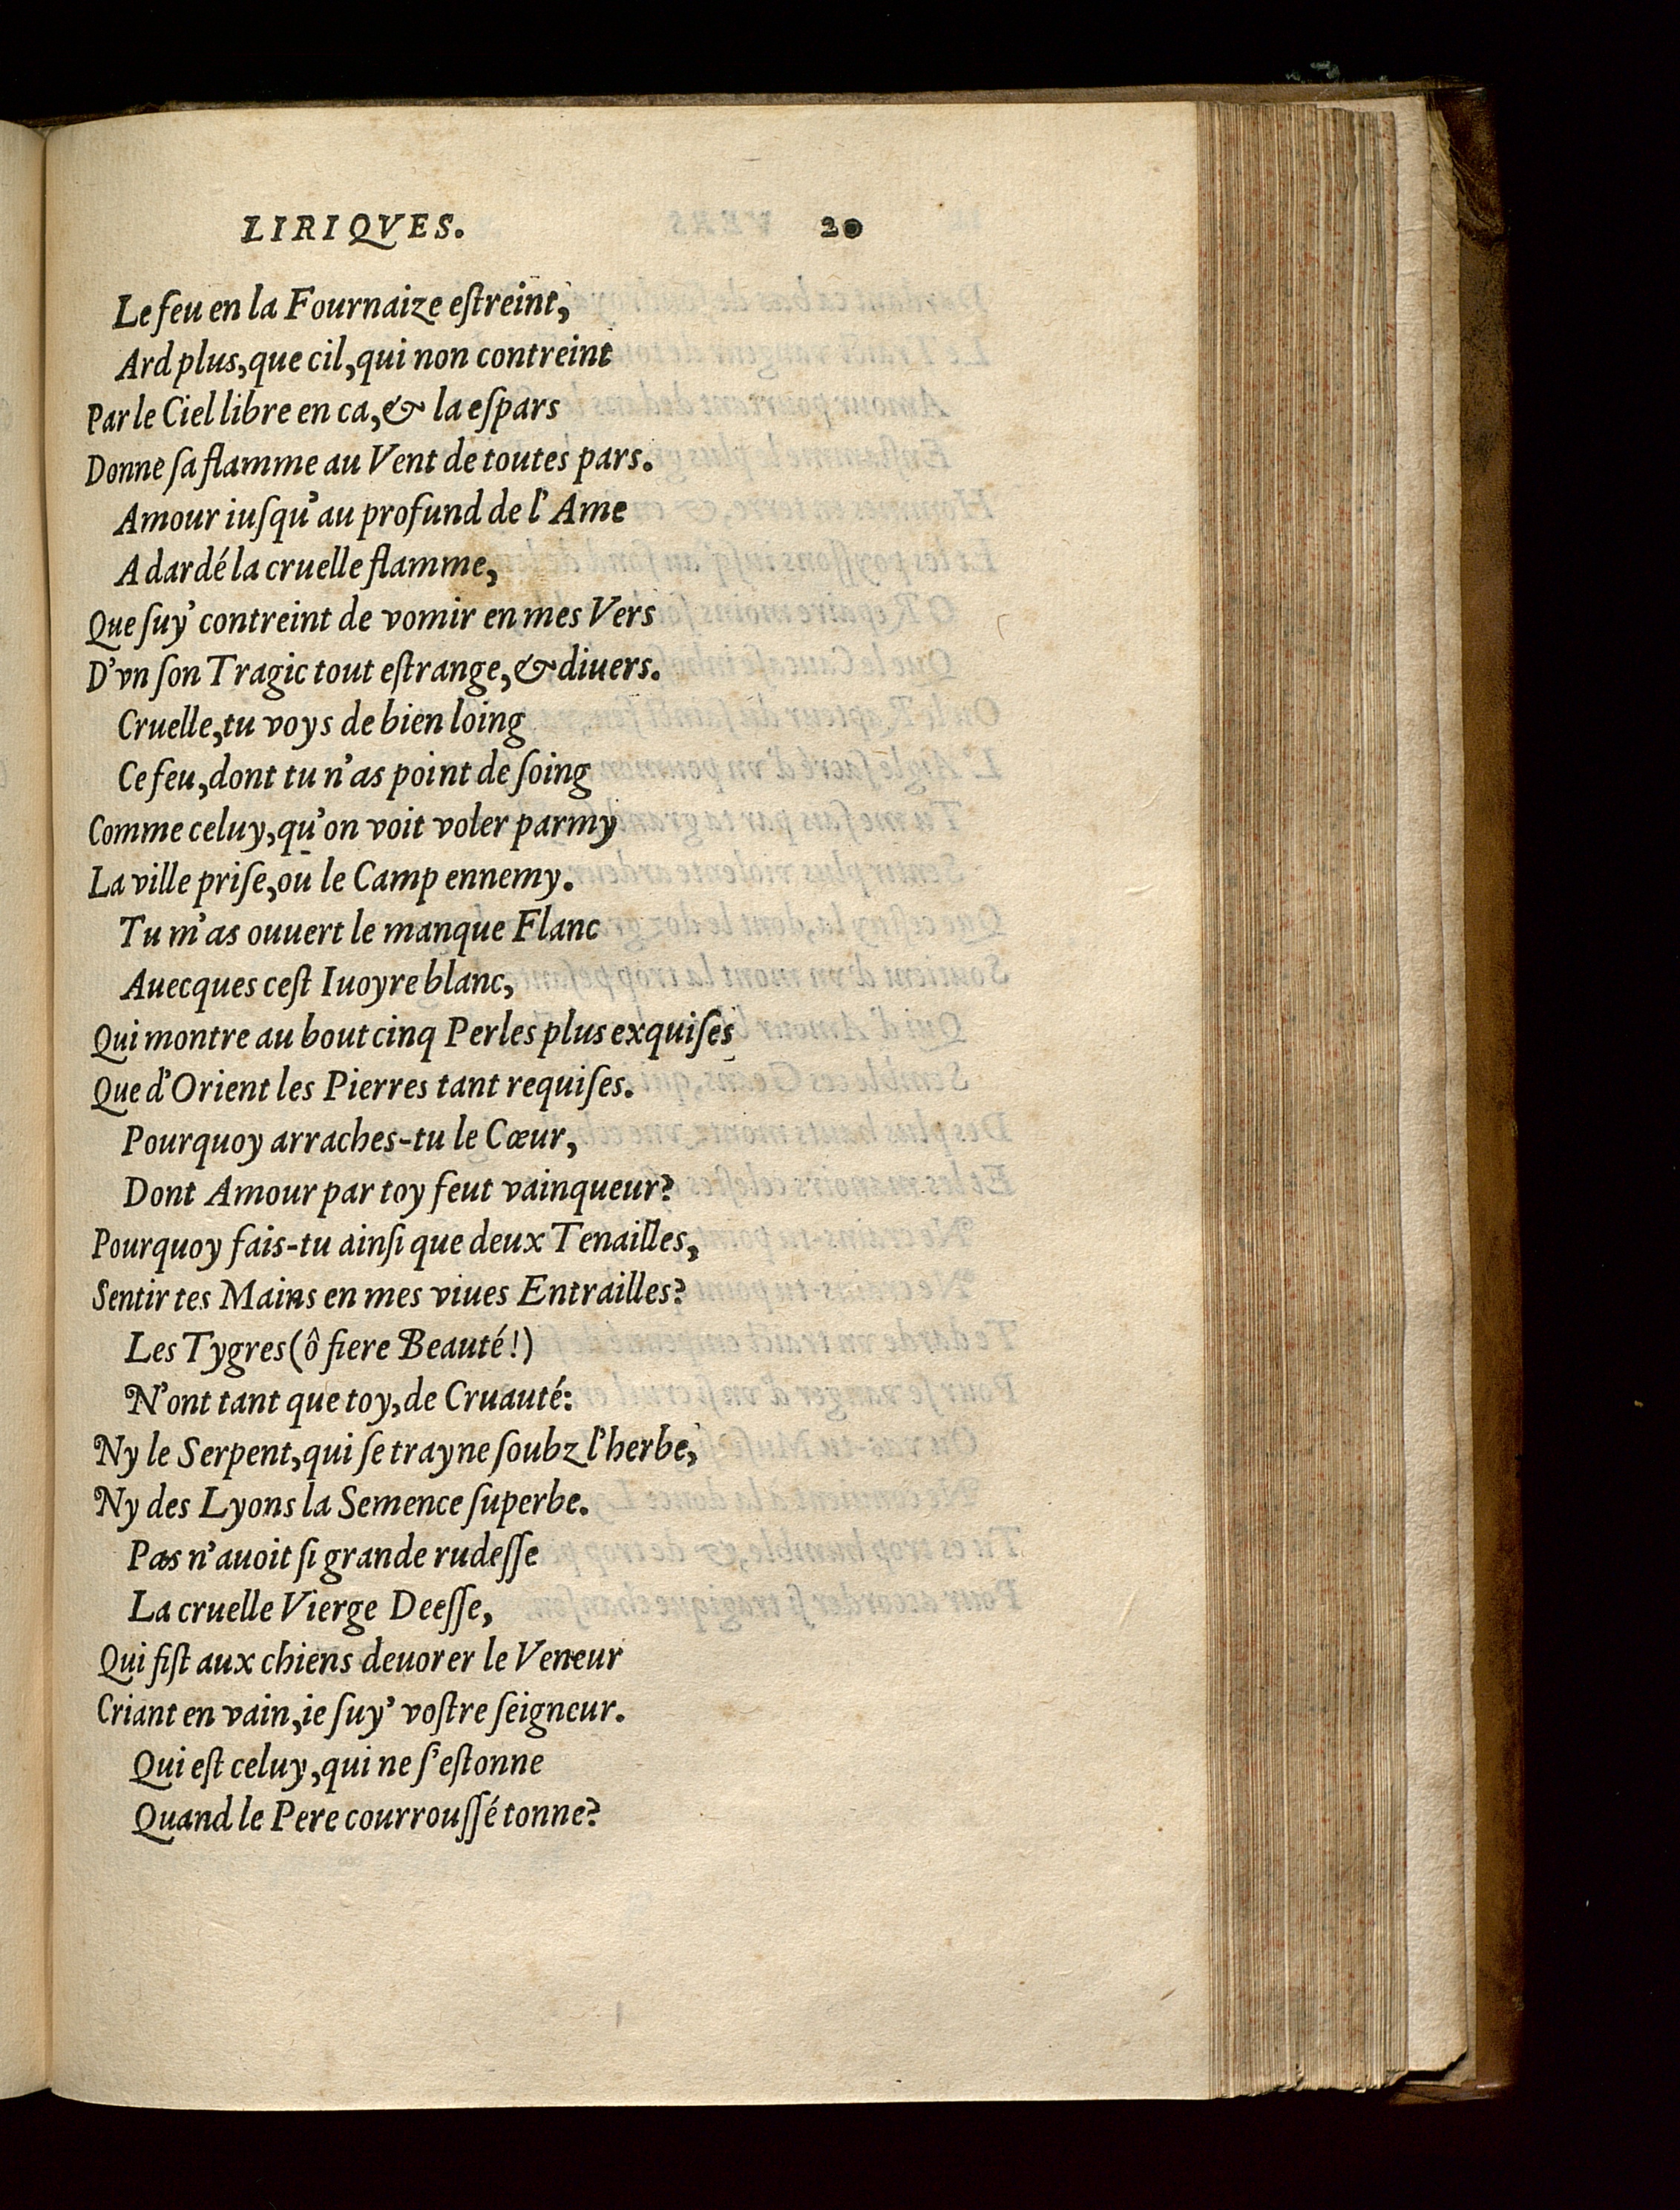 LIRIQVES. 20
Le feu en la Fournaize eſtreint,
Ard plus, que cil, qui non contreint
Par le Ciel libre en ca, & la eſpars
Donne ſa flamme au Vent de toutes pars.
Amour iuſqu'au profund de l'Ame
A dardé la cruelle flamme,
Que ſuy' contreint de vomir en mes Vers
D'vn ſon Tragic tout eſtrange, & diuers.
Cruelle, tu voys de bien loing
Ce feu, dont tu n'as point de ſoing
Comme celuy, qu'on voit voler parmy
La ville priſe, ou le Camp ennemy.
Tu m'as ouuert le manque Flanc
Auecques ceſt Iuoyre blanc,
Qui montre au bout cinq Perles plus exquiſes
Que d'Orient les Pierres tant requiſes.
Pourquoy arraches-tu le Cœur,
Dont Amour par toy feut vainqueur?
Pourquoy fais-tu ainſi que deux Tenailles,
Sentir tes Mains en mes viues Entrailles?
Les Tygres (ô fiere Beauté!)
N'ont tant que toy, de Cruauté:
Ny le Serpent, qui ſe trayne ſoubz l'herbe,
Ny des Lyons la Semence ſuperbe.
Pas n'auoit ſi grande rudeſſe
La cruelle Vierge Deeſſe,
Qui fiſt aux chiens deuorer le Veneur
Criant en vain, ie ſuy' voſtre ſeigneur.
Qui eſt celuy, qui ne ſ'eſtonne
Quand le Pere courrouſſé tonne?